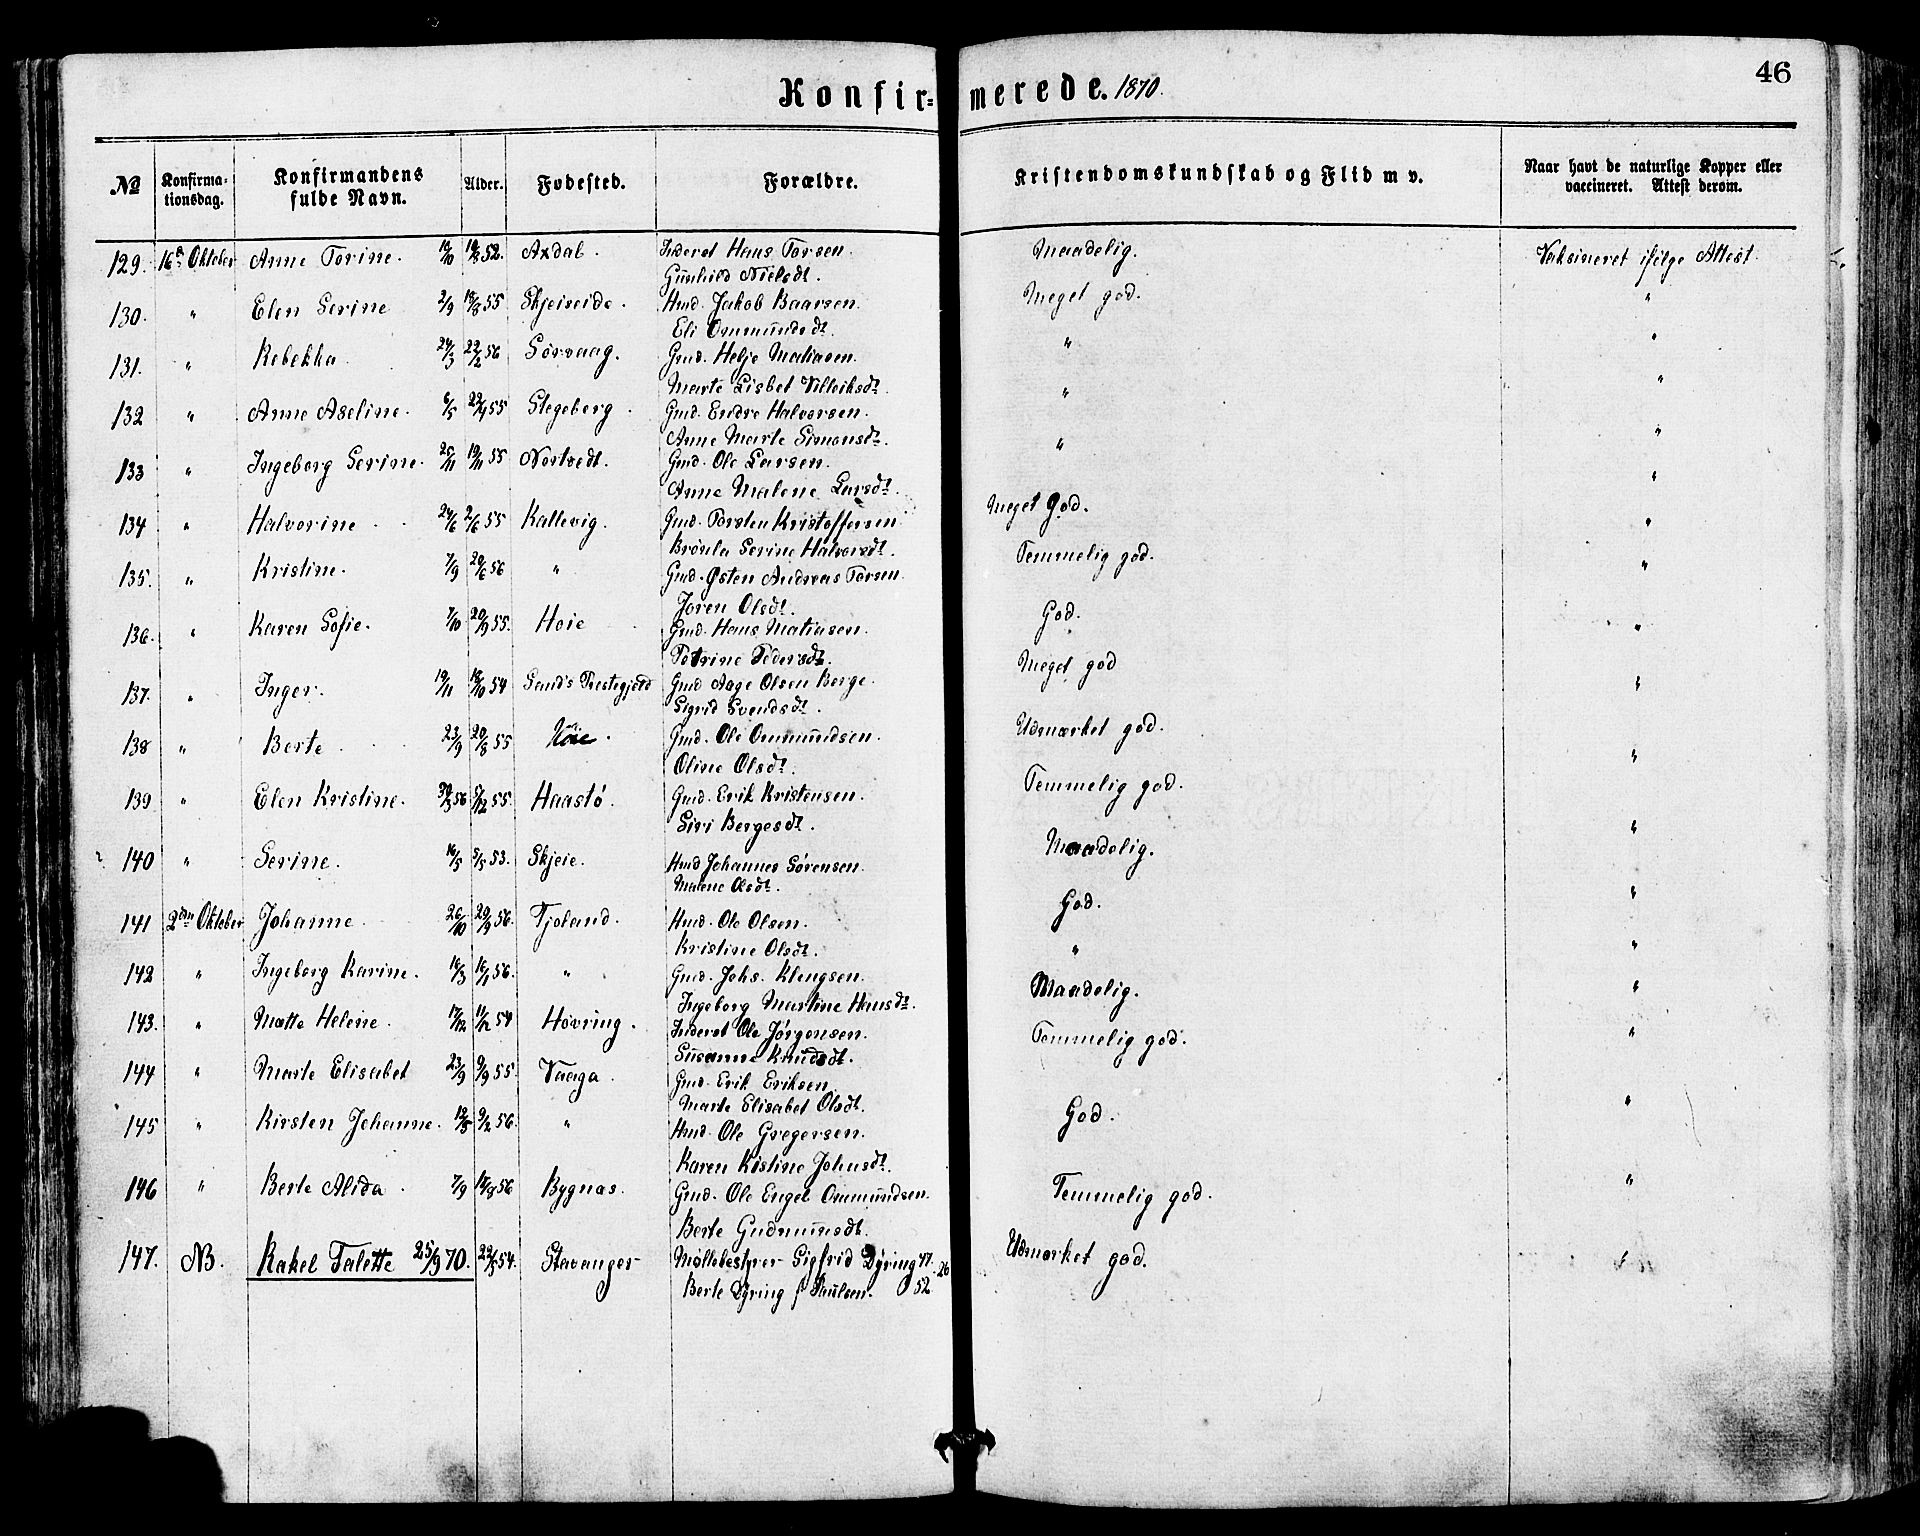 46
Konfir= merede. 1870.
№ Konfirma-tionsdag. Konfirmandens fulde Navn. Alder. Fødested. Forældre. Kristendomskundskab og Flid m v. Naar havt de naturlige Kopper eller vaccineret. Attest derom.
129. 16de Oktober Anne Torine. 52. Axdal. Inderst Hans Torsen. Maadelig. Vaksineret ifølge Attest
Gunhild Nielsdt.
130. " Elen Serine 2/9 18/8 55 Skjeiseide. Hmd. Jakob Baarsen. Meget god. "
Eli Ommundsdt.
131. " Rebekka. 24/3 22/2 56 Sörvaag. Gmd. Helje Matiasen. " "
Marte Lisbet Villeiksdt.
132 " Anne Aseline. 6/5 55 Stegeberg. Gmd. Endre Halvorsen. " "
Anne Marte Simonsdt.
133 " Ingeborg Serine. 25/11 19/11 55 Nortvedt. Gmd. Ole Larsen. " "
Anne Malene Larsdt.
134 " Halvorine. 24/6 2/6 55 Kallevig. Gmd. Torsten Kristoffersen Meget God. "
Brönla Serine Halvorsdt.
135. " Kristine. 7/9 20/6 56 " Gmd. Østen Andreas Torsen. Temmelig god. "
Joren Olsdt.
136. " Karen Sofie. 7/10 20/9 55. Hoie Gmd. Hans Matiasen. God. "
Petrine Pedersdt.
137. " Inger. 19/11 18/10 54 Sands Prestegjeld Gmd Aage Olsen Berge. Meget god "
Sigrid Svendsdt.
138 " Berte. 23/9 20/8 55 Höie. Gmd. Ole Ommundsen. Udmærket god. "
Oline Olsdt.
139 " Elen Kristine. 56 5/12 55. Haastö. Gmd. Erik Kristensen. Temmelig god. "
Siri Bergesdt.
140 " Serine. 16/5 5/5 53. Skjeie. Hmd Johannes Sörensen. Maadelig. "
Malene Olsdt.
141 2den Oktober Johanne 26/10 29/9 56. Tjoland. Hmd. Ole Olsen. God. "
Kristine Olsdt.
142 " Ingeborg Karine. 16/3 16/1 56. " Gmd. Johs. Klengsen. " "
Ingeborg Martine Hansdt.
143. " Mætte Helene. 17/12 11/12 54 Hovring. Inderst Ole Jörgensen. Maadelig. "
Susanne Knudsdt.
144 " Marte Elisabet 23/9 9/9 55. Vaaga. Gmd. Erik Eriksen. Temmelig god. "
Marte Elisabet Olsdt.
145 " Kirsten Johanne. 9/2 56. " Hmd. Ole Gregersen. God. "
Karen Kistine Johnsdt.
146 " Berte Alida. 7/9 56 Bygnas. Gmd. Ole Engel Ommundsen. Temmelig god. "
Berte Gudmunsdt.
147. NB. Rakel Talette 25/9 70. 54. Stavanger Møllebestyrer Sigfrid Dyring 47. 26 Udmærket god. "
Berte Dyring f Paulsen. 52